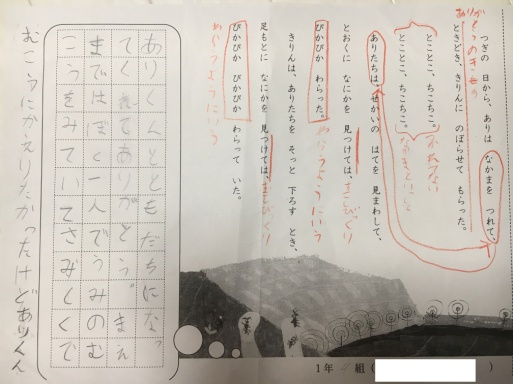 つぎの 日から、ありは なかまを つれて、
ときどき、きりんに のぼらせて もらった。
とことこ、ちこちこ。
とことこ、ちこちこ。
ありたちは、せかいの はてを 見まわして、
とおくに なにかを 見つけては、
ぴかぴか わらった。
きりんは、ありたちを そっと 下ろす とき、
足もとに なにかを 見つけては、
ぴかぴか ぴかぴか わらって いた。
ありくんとともだちになっ
てくれてありがとう。まえ
まではぼく一人でうみのむ
こうをみていてさみしくで
むこうにかえりたかったけどありくん
1年 組 ( )